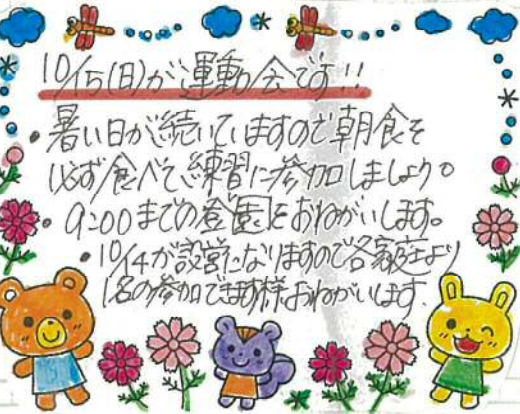 10/15(日)が運動会です!!
・暑い日が続いていますので朝食を
必ず食べて、練習に参加しましょう。
・9:00までの登園をおねがいします。
・10/14が設営になりますので各家庭より
1名の参加できます様おねがいします.